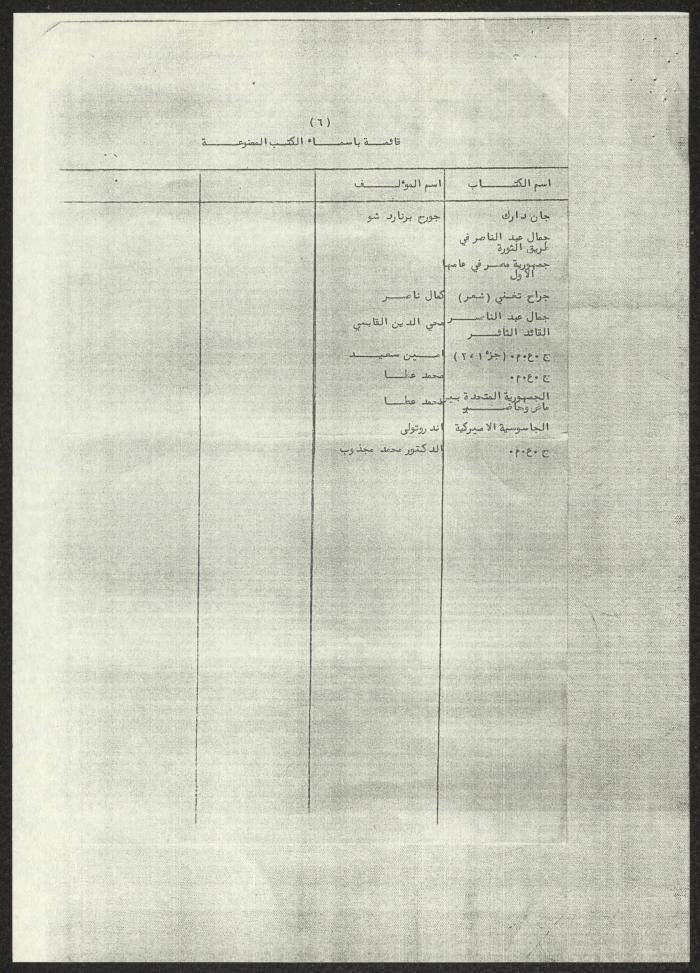 (٦)
قائمة باسماء الكتب الممنوعة
اسم الكتاب اسم المؤلف
جان دارك جورج برنارد شو
جمال عبد الناصر في
طريق الثورة
جمهورية مصر في عامها
الاول
جراح تغني (شعر) كمال ناصر
جمال عبد الناصر محي الدين القابسي
القائد الثائر
ج٠ع٠م٠ (جزء ١،٢) امين سعيد
ج٠ع٠م٠ محمد عطا
الجمهورية المتحدة بين محمد عطا
ماض وحاضر
الجاسوسية الاميركية اندروتولى
ج٠ع٠م٠ الدكتور محمد مجذوب